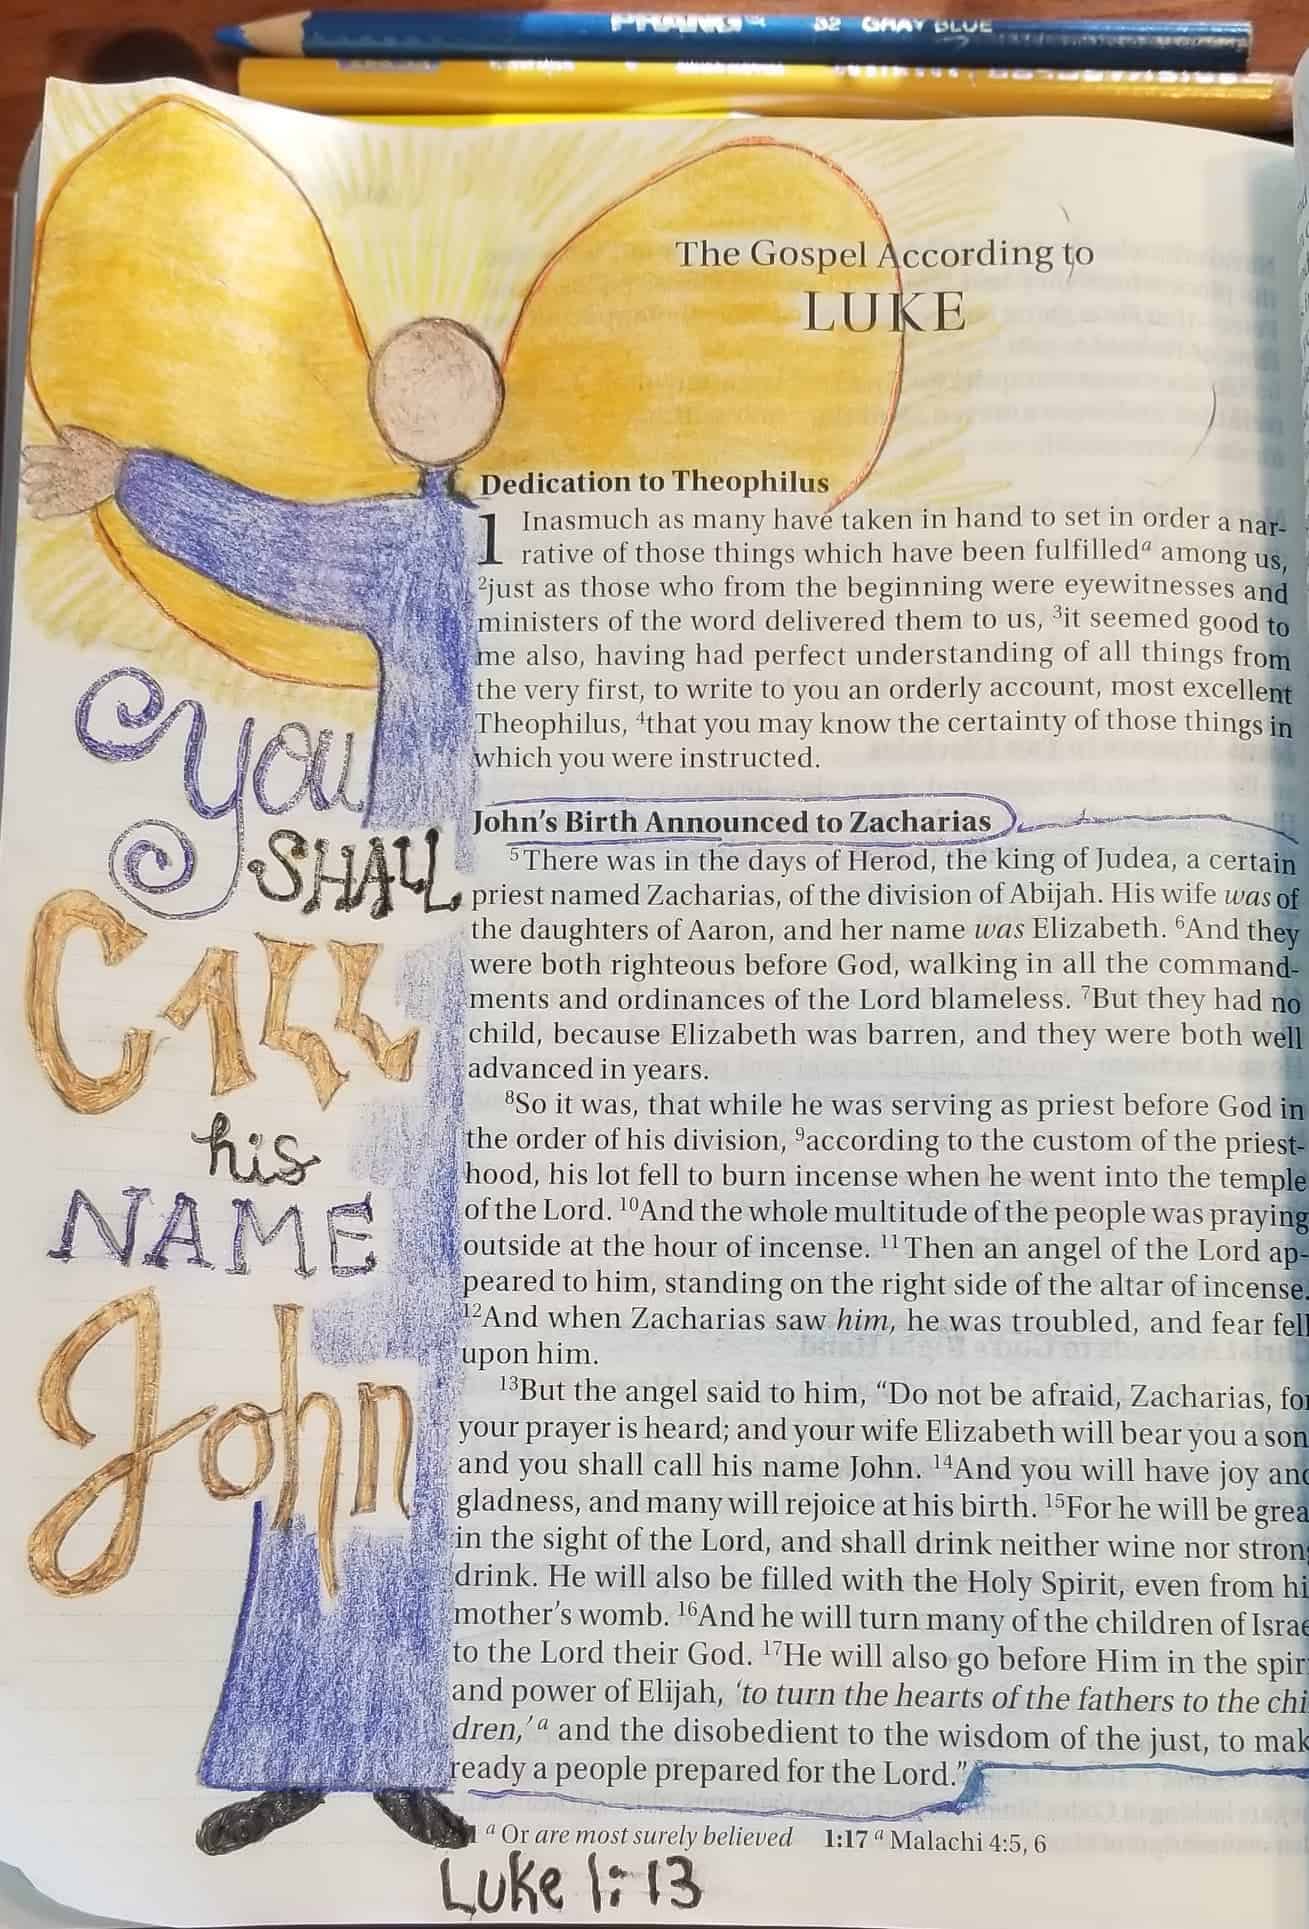 PRANG 32 GRAY BLUE
The Gospel According to
LUKE
Dedication to Theophilus
1 Inasmuch as many have taken in hand to set in order a nar-
rative of those things which have been fulfilledᵃ among us,
²just as those who from the beginning were eyewitnesses and
ministers of the word delivered them to us, ³it seemed good to
me also, having had perfect understanding of all things from
the very first, to write to you an orderly account, most excellent
Theophilus, ⁴that you may know the certainty of those things in
which you were instructed.
John's Birth Announced to Zacharias
⁵There was in the days of Herod, the king of Judea, a certain
priest named Zacharias, of the division of Abijah. His wife was of
the daughters of Aaron, and her name was Elizabeth. ⁶And they
were both righteous before God, walking in all the command-
ments and ordinances of the Lord blameless. ⁷But they had no
child, because Elizabeth was barren, and they were both well
advanced in years.
⁸So it was, that while he was serving as priest before God in
the order of his division, ⁹according to the custom of the priest-
hood, his lot fell to burn incense when he went into the temple
of the Lord. ¹⁰And the whole multitude of the people was praying
outside at the hour of incense. ¹¹Then an angel of the Lord ap-
peared to him, standing on the right side of the altar of incense.
¹²And when Zacharias saw him, he was troubled, and fear fell
upon him.
¹³But the angel said to him, “Do not be afraid, Zacharias, for
your prayer is heard; and your wife Elizabeth will bear you a son
and you shall call his name John. ¹⁴And you will have joy and
gladness, and many will rejoice at his birth. ¹⁵For he will be grea
in the sight of the Lord, and shall drink neither wine nor strong
drink. He will also be filled with the Holy Spirit, even from hi
mother's womb. ¹⁶And he will turn many of the children of Israe
to the Lord their God. ¹⁷He will also go before Him in the spir
and power of Elijah, ‘to turn the hearts of the fathers to the chi
dren,’ᵃ and the disobedient to the wisdom of the just, to mak
ready a people prepared for the Lord.”
ᵃ Or are most surely believed 1:17 ᵃ Malachi 4:5, 6
you
SHALL
CALL
his
NAME
John
Luke 1:13